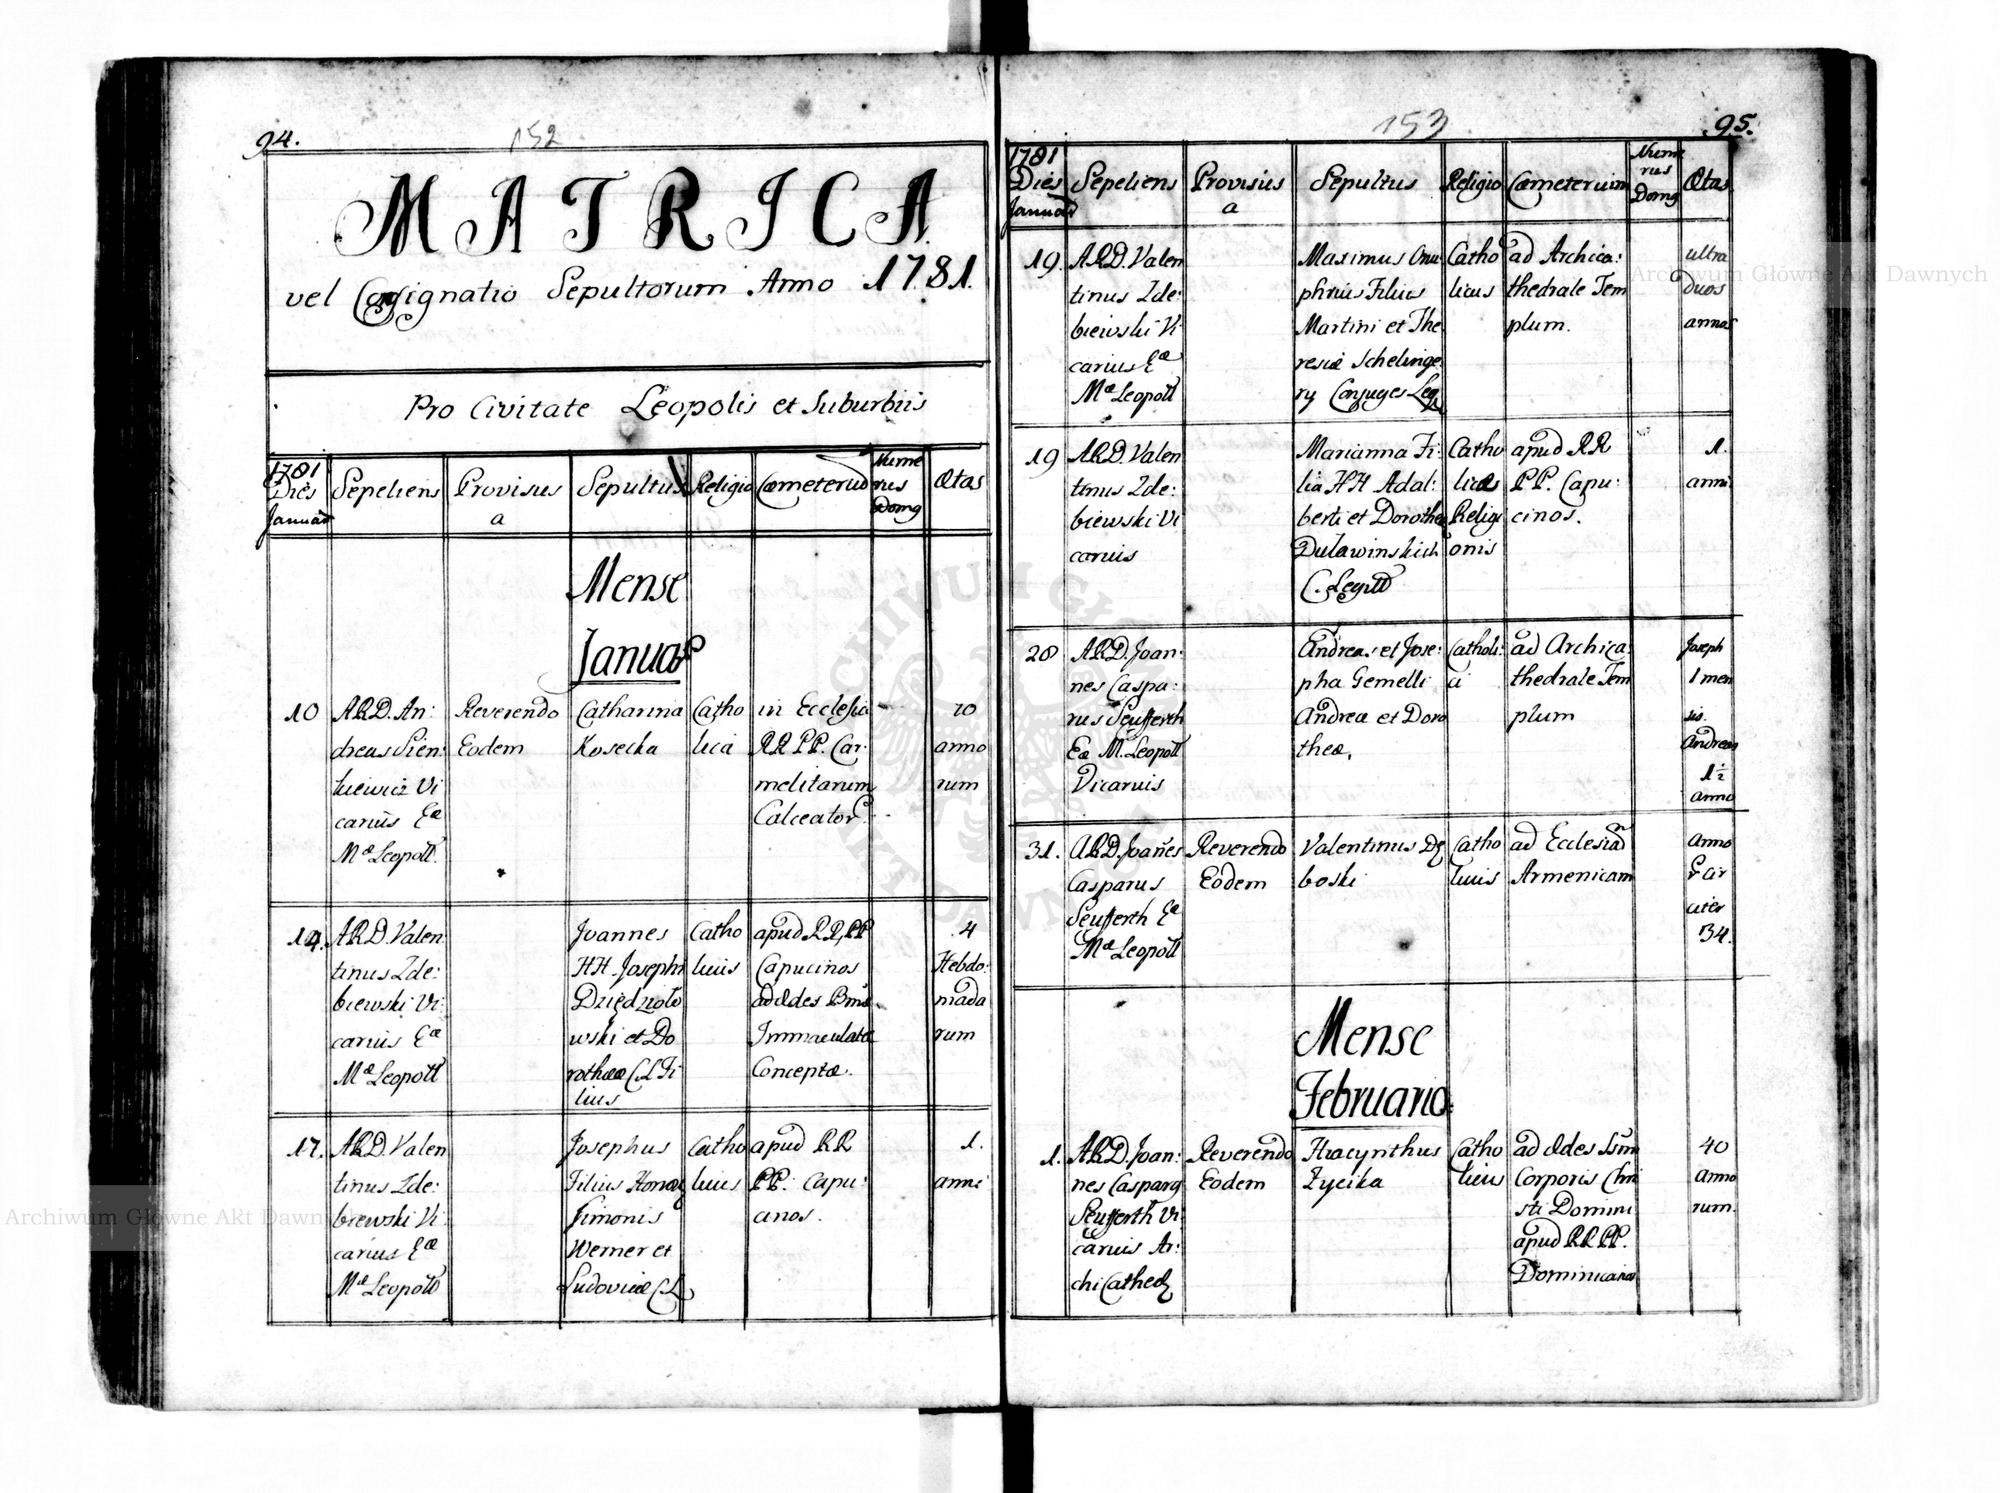 94.
152
MATRICA
vel Consignatio Sepultorum Anno 1781.
Pro Civitate Leopolis et Suburbiis
1781
Dies
Januar
Sepeliens
Provisus
a
Sepultus
Religio
Cœmeterium
Nume
rus
Domg
Ætas
Mense
Januar
10
ARD. An:
dreas Sien:
kiewicz Vi
carius Eæ
Mæ Leopoll.
Reverendo
Eodem
Catharina
Kosecka
Catho
lica
in Ecclesia
RR PP. Car:
melitarum
Calceator.
70
anno
rum
14.
ARD. Valen
tinus Zde:
biewski Vi:
carius Eæ
Mæ Leopoll
Joannes
HH. Josephi
Dziędzioło
wski et Do
rotheæ C.L. Fi
lius
Catho
licus
apud RR, PP
Capucinos
ad Ædes Bmæ
Immaculatæ
Conceptæ.
4
Hebdo:
mada
rum
17.
ARD. Valen
tinus Zde:
biewski Vi
carius Eæ
Mæ Leopoll
Josephus
Filius Honor
Simonis
Werner et
Ludovicæ C.L.
Catho
licus
apud RR
PP. Capu:
cinos.
1.
anni
153
95.
1781
Dies
Januar
Sepeliens
Provisus
a
Sepultus
Religio
Cœmeterium
Nume
rus
Domg
Ætas
19.
ARD. Valen
tinus Zde:
biewski Vi
carius Eæ
Mæ Leopoll
Maximus Onu
phrius Filius
Martini et The
resiæ Schelinge
ry Conjuges Leg
Catho
licus
ad Archica:
thedrale Tem
plum.
ultra
duos
annos
19
ARD. Valen
tinus Zde:
biewski Vi
carius
Marianna Fi:
lia HH Adal:
berti et Dorotheæ
Dulawinskich
C. Legitt
Catho
licæ
Religi
onis
apud RR
PP. Capu:
cinos.
1.
anni
28
ARD. Joan:
nes Caspa:
rus Seufferth
Eæ M. Leopoll
Vicarius
Andreas et Jose:
pha Gemelli
Andreæ et Doro
theæ.
Catholi:
ci
ad Archica
thedrale Tem
plum
Joseph
1 men
sis.
Andreas
1 1/2
anno
31.
ARD. Joanes
Casparus
Seufferth Eæ
Mæ Leopoll
Reverendo
Eodem
Valentinus Dę
boski
Catho
licus
ad Ecclesiam
Armenicam
Anno
34.
Mense
Februario.
1.
ARD. Joan:
nes Casparg
Seufferth Vi
carius Ar:
chi Cathed
Reverendo
Eodem
Hyacynthus
Zycika
Catho
licus
ad Ædes Ssmi
Corporis Chri
sti Domini
apud RR PP.
Dominicanos
40
Anno
rum.
Archiwum Główne Akt Dawnych
Archiwum Główne Akt Dawnych